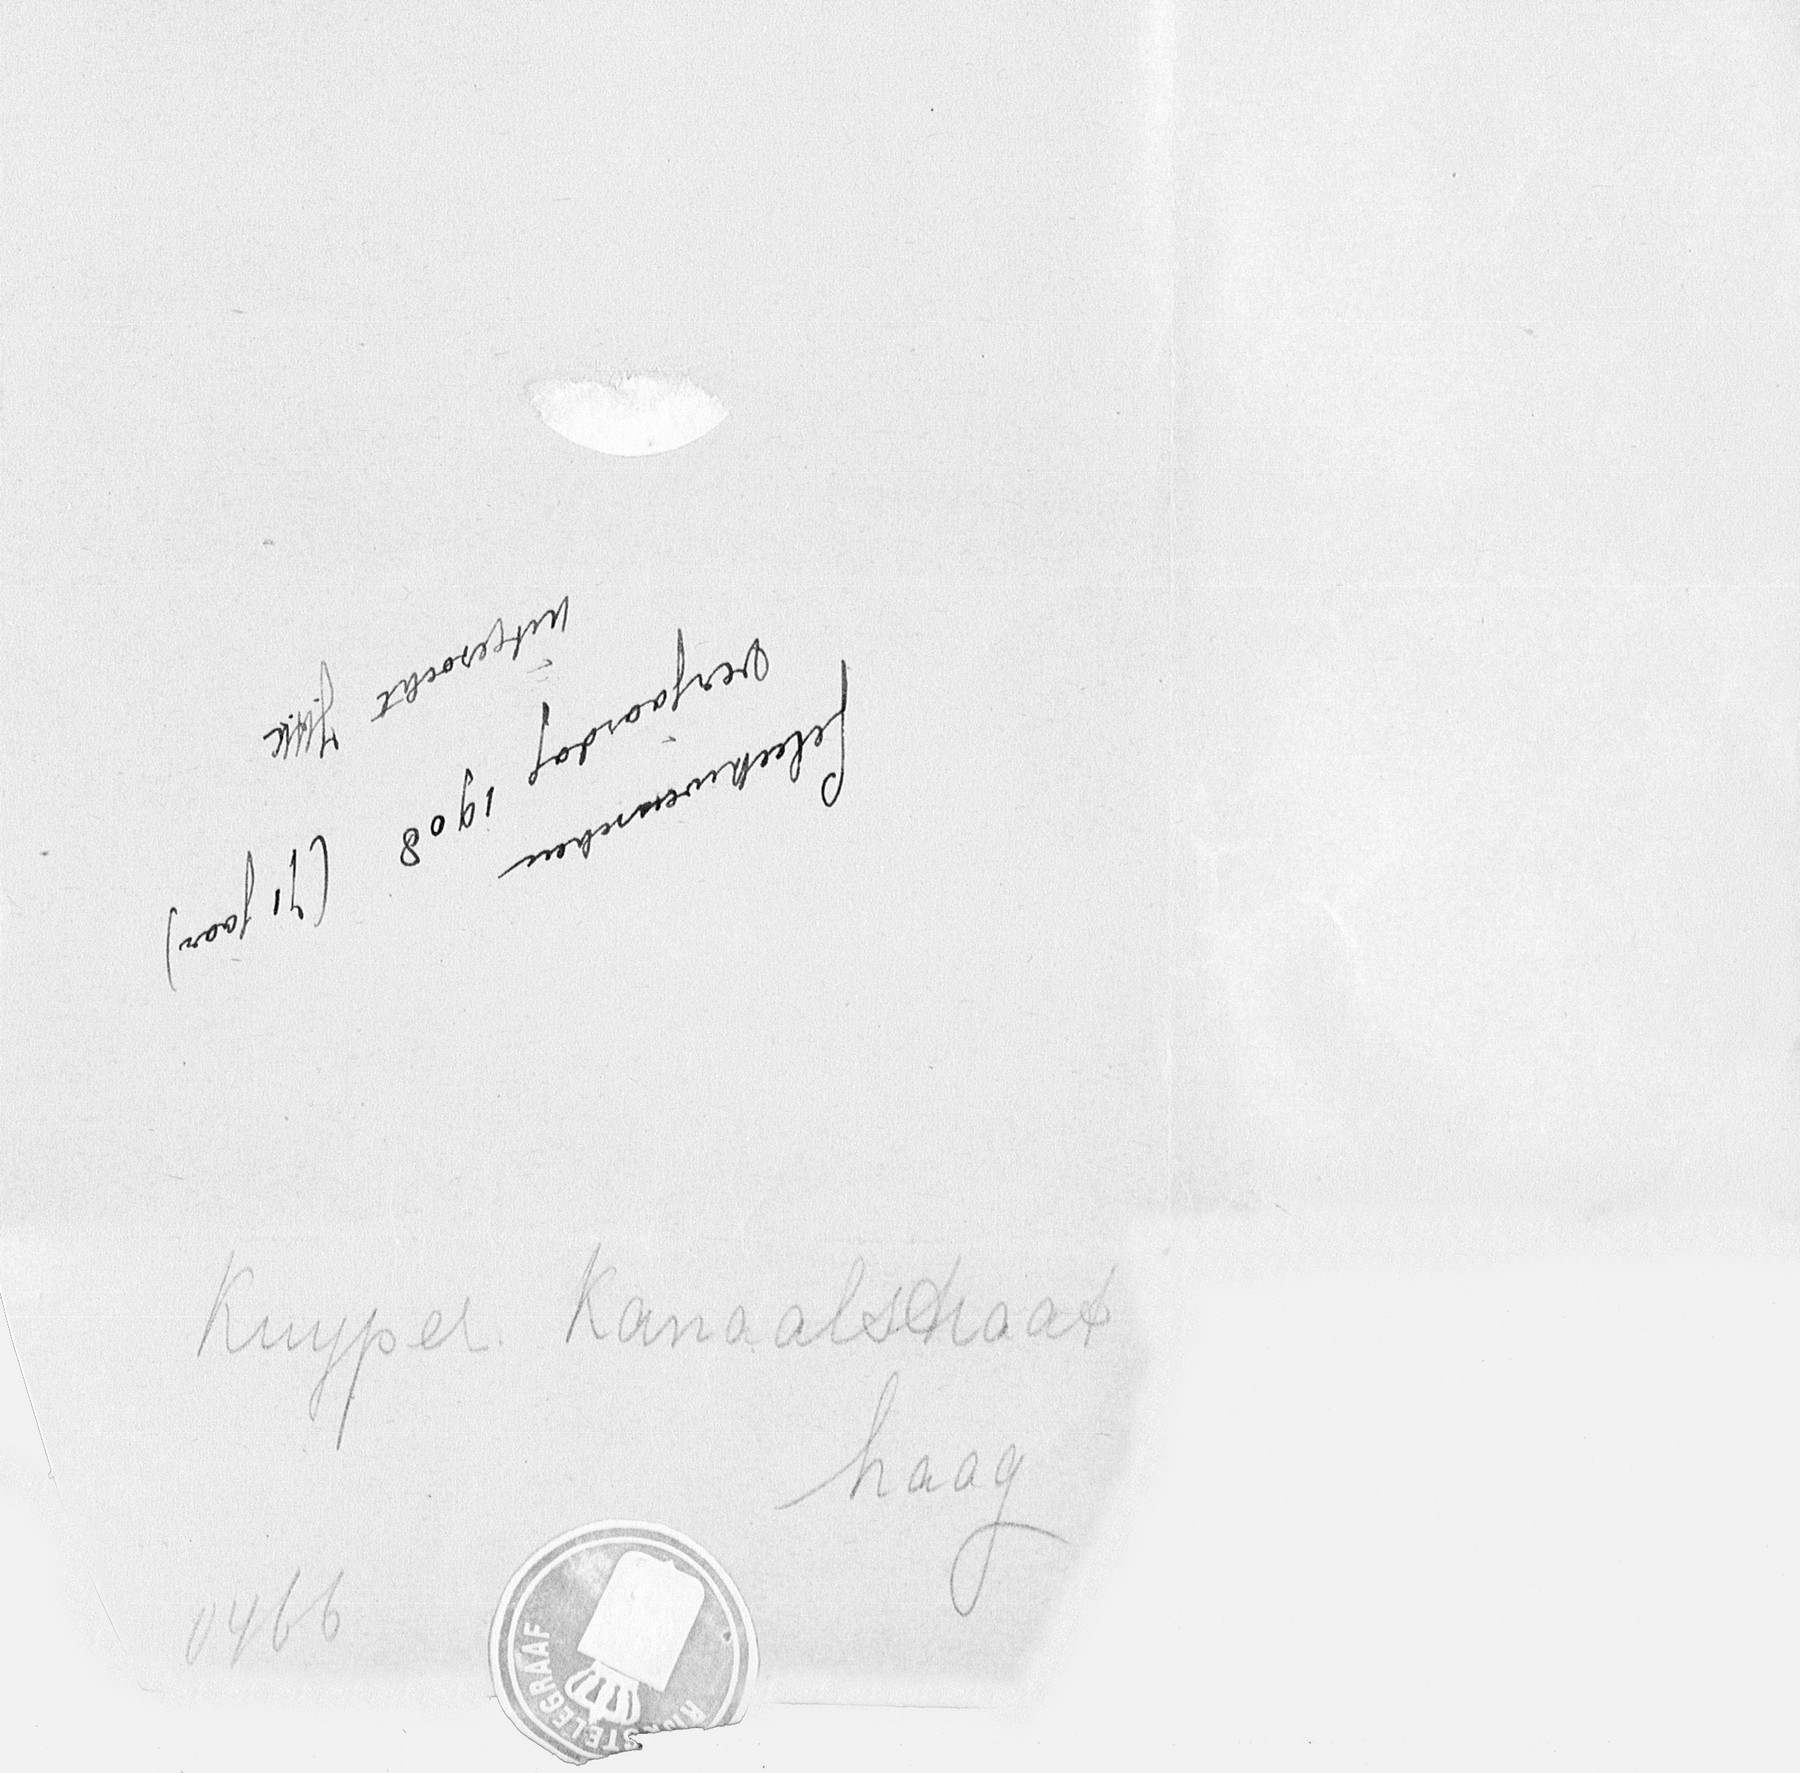 Gelukwenschen
verjaardag 1908 (71 jaar)
uitgezocht
Kuyper. Kanaalstraat
haag
0466
RIJKSTELEGRAAF